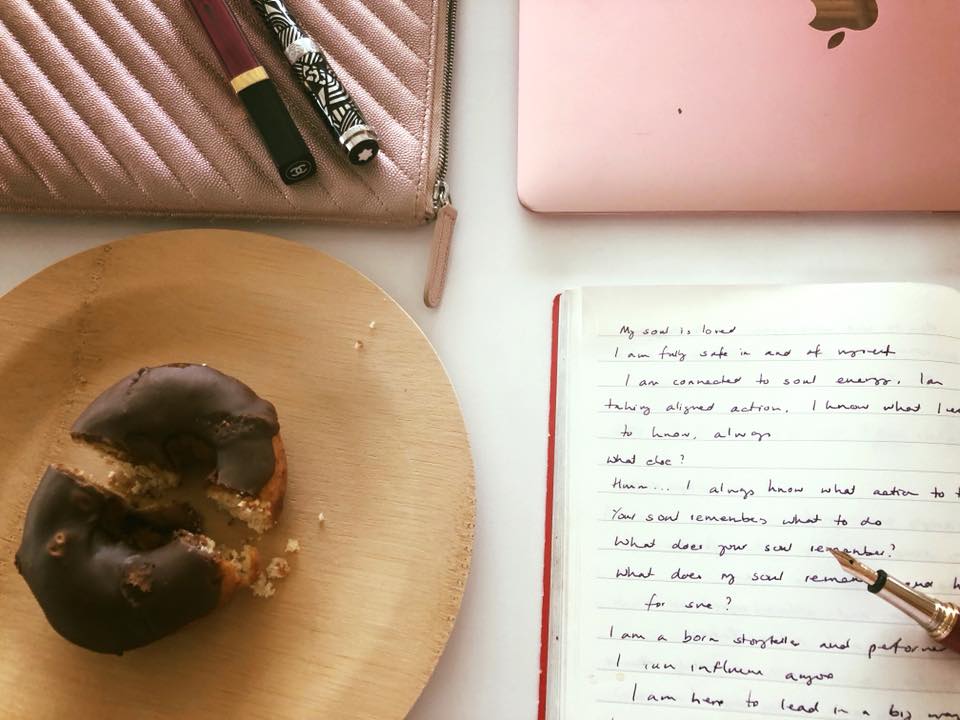 My soul is loved
I am fully safe in and of myself
I am connected to soul energy. I am
taking aligned action. I know what I
to know, always
What else?
Hmm... I always know what action to
Your soul remembers what to do
What does your soul remember?
What does my soul and
for sure?
I am a born storyteller and performer
I can influence anyone
I am here to lead in a big way